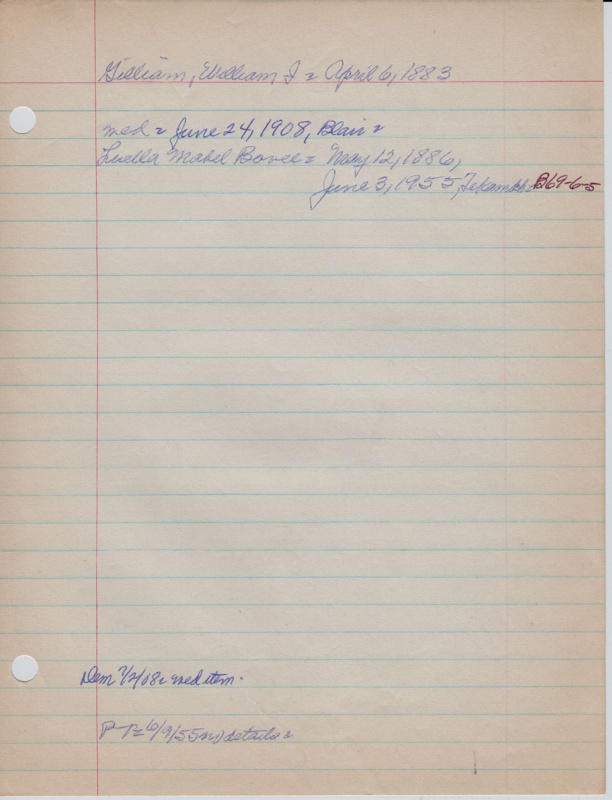 Gilliam, William J = April 6, 1883
med = June 24, 1908, Blair =
Luella Mabel Bovee = May 12, 1886,
June 3, 1955, Tekamah = B69-6-5
Dem 7/2/08 = med item.
P-T = 6/9/55 details =